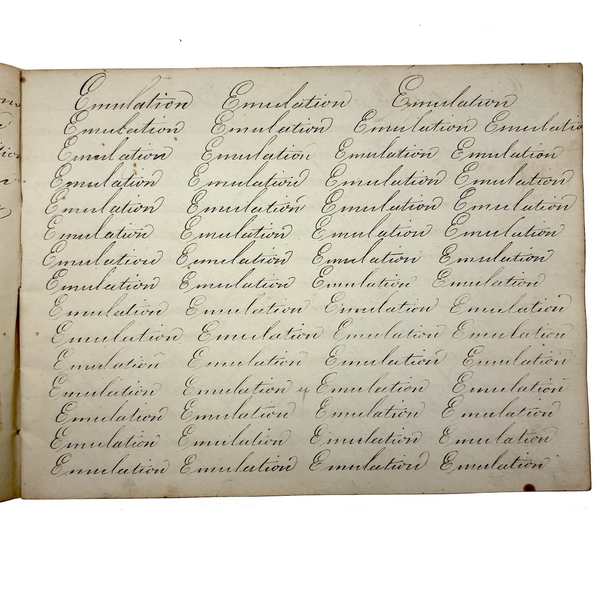 Emulation Emulation Emulation
Emulation Emulation Emulation Emulatio
Emulation Emulation Emulation Emulation
Emulation Emulation Emulation Emulation
Emulation Emulation Emulation Emulation
Emulation Emulation Emulation Emulation
Emulation Emulation Emulation Emulation
Emulation Emulation Emulation Emulation
Emulation Emulation Emulation Emulation
Emulation Emulation Emulation Emulation
Emulation Emulation Emulation Emulation
Emulation Emulation y Emulation Emulation
Emulation Emulation Emulation Emulation
Emulation Emulation Emulation Emulation
Emulation Emulation Emulation Emulation